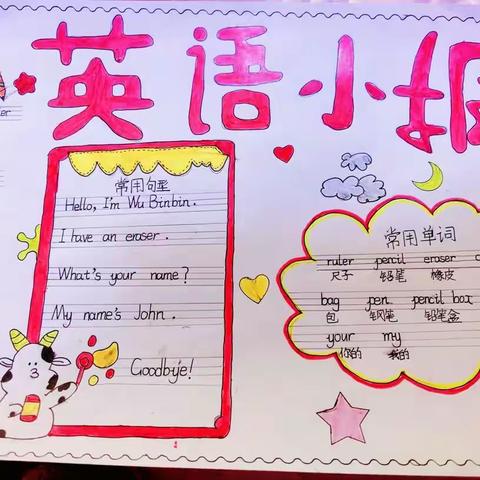 英语小报
常用句型
Hello, I'm Wu Binbin.
I have an eraser.
What's your name?
My name's John.
Goodbye!
常用单词
ruler pencil eraser
尺子 铅笔 橡皮
bag pen pencil box
包 钢笔 铅笔盒
your my
你的 我的